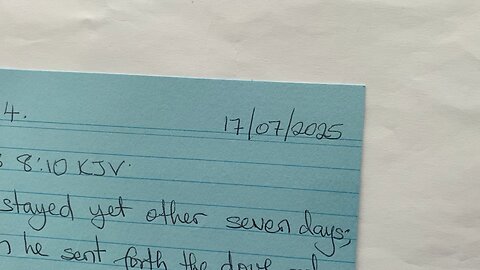 4. 17/07/2025
8:10 KJV.
stayed yet other seven days;
he sent forth the dove